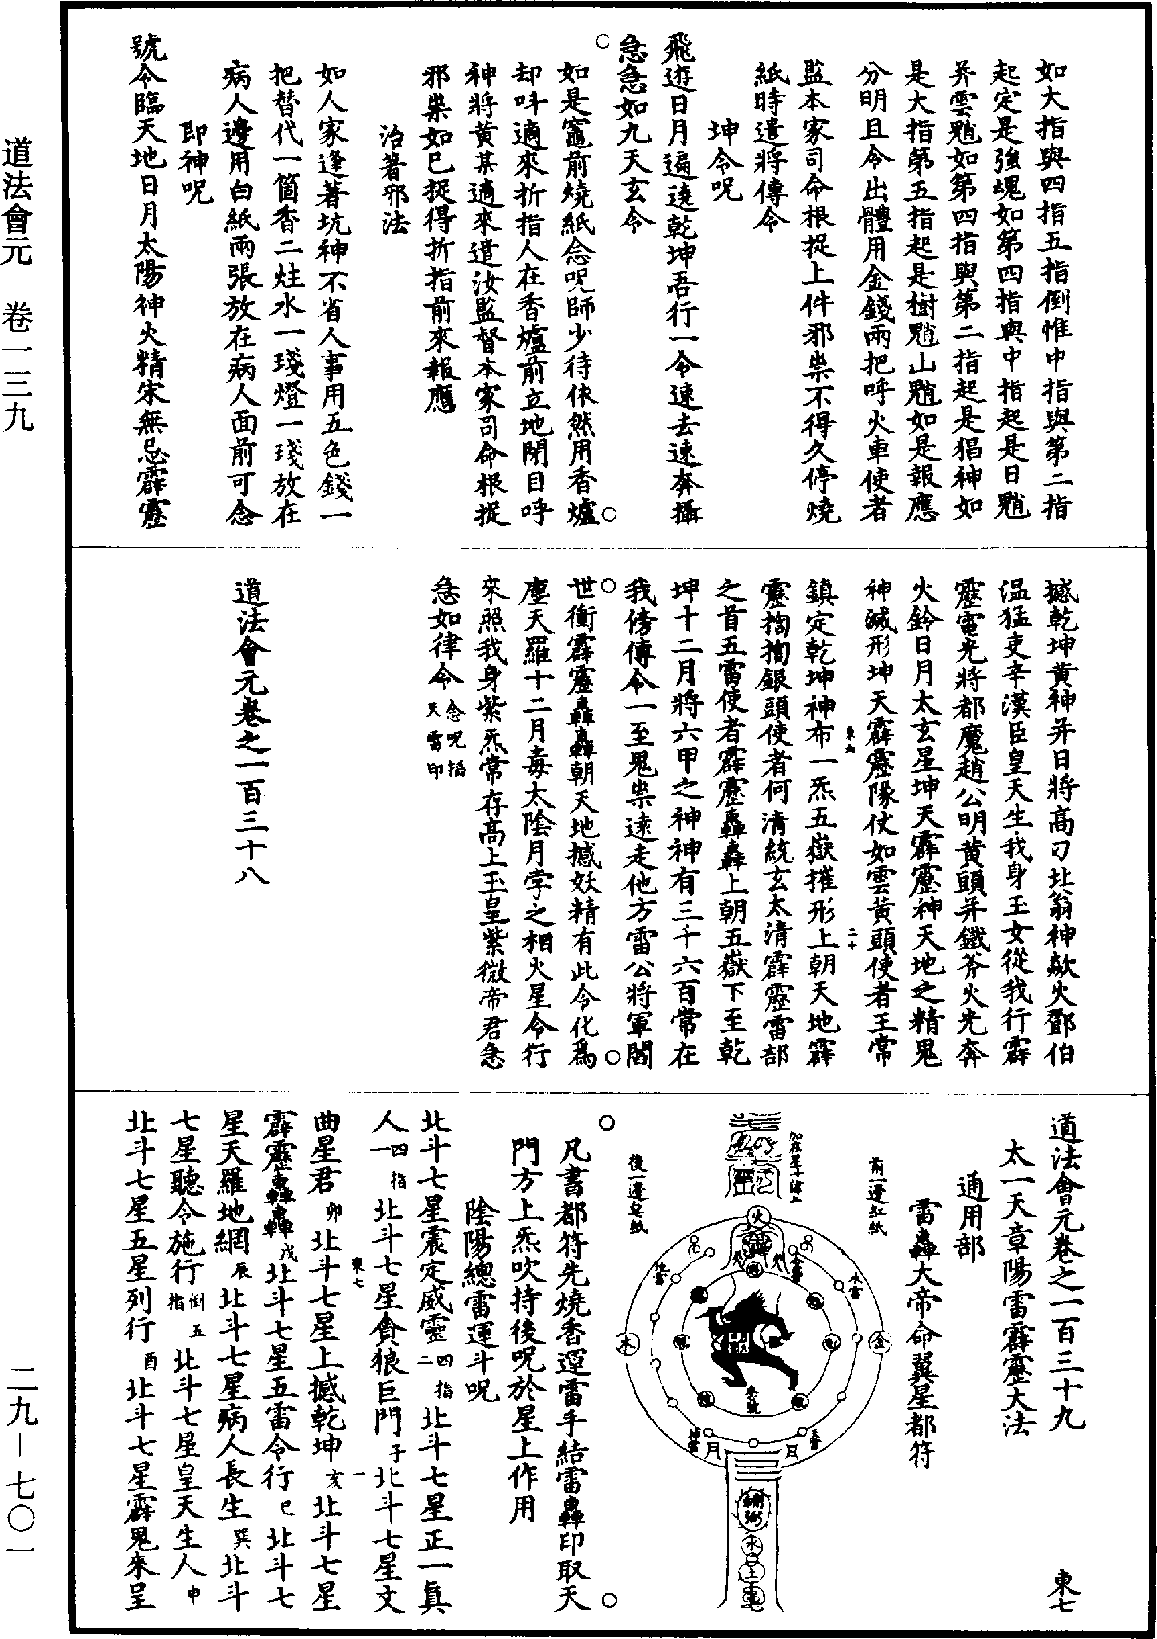 道法會元　卷一三九
二九—七〇一
如大指與四指五指倒惟中指與第二指
起定是強魂如第四指與中指起是日魈
并雲魈如第四指與第二指起是猖神如
是大指第五指起是樹魈山魈如是報應
分明且令出體用金錢兩把呼火車使者
監本家司命根捉上件邪祟不得久停燒
紙時遣將傳令
坤令呪
飛遊日月遍遶乾坤吾行一令速去速奔攝
急急如九天玄令
如是竈前燒紙念呪師少待依然用香爐
却呌適來折指人在香爐前立地閉目呼
神將黄某適來遣汝監督本家司命根捉
邪祟如已捉得折指前來報應
治著邪法
如人家逢著坑神不省人事用五色錢一
把替代一箇香二炷水一琖燈一琖放在
病人邊用白紙兩張放在病人面前可念
即神呪
號令臨天地日月太陽神火精宋無忌霹靂
撼乾坤黄神并日將高刁北翁神歘火鄧伯
温猛吏辛漢臣皇天生我身玉女從我行霹
靂電光將都魔趙公明黄頭并鐵斧火光奔
火鈴日月太玄星坤天霹靂神天地之精鬼
神滅形坤天霹靂隊仗如雲黄頭使者王常
鎮定乾坤神布一炁五嶽摧形上朝天地霹
靂掏掏銀頭使者何清統玄太清霹靂雷部
之首五雷使者霹靂轟轟上朝五嶽下至乾
坤十二月將六甲之神神有三千六百常在
我傍傳令一至鬼祟遠走他方雷公將軍閻
世衡霹靂轟轟朝天地撼妖精有此令化爲
塵天羅十二月毒太陰月孛之相火星令行
來照我身紫炁常存高上玉皇紫微帝君急
急如律令 念呪掐天雷印
道法會元卷之一百三十八
道法會元卷之一百三十九　東七
太一天章陽雷霹靂大法
通用部
雷轟大帝命翼星都符
前一邊紅紙
後一邊皂紙
火
水
金
月
日
凡書都符先燒香運雷手結雷轟印取天
門方上炁吹持後呪於星上作用
陰陽總雷運斗呪
北斗七星震定威靈 四指二 北斗七星正一真
人 四指一 北斗七星貪狼巨門 子 北斗七星文
東七　一
曲星君 卯 北斗七星上撼乾坤 亥 北斗七星
霹靂轟轟 戌 北斗七星五雷令行 巳 北斗七
星天羅地網 辰 北斗七星病人長生 巽 北斗
七星聽令施行 倒五指 北斗七星皇天生人 申
北斗七星五星列行 酉 北斗七星霹鬼來呈